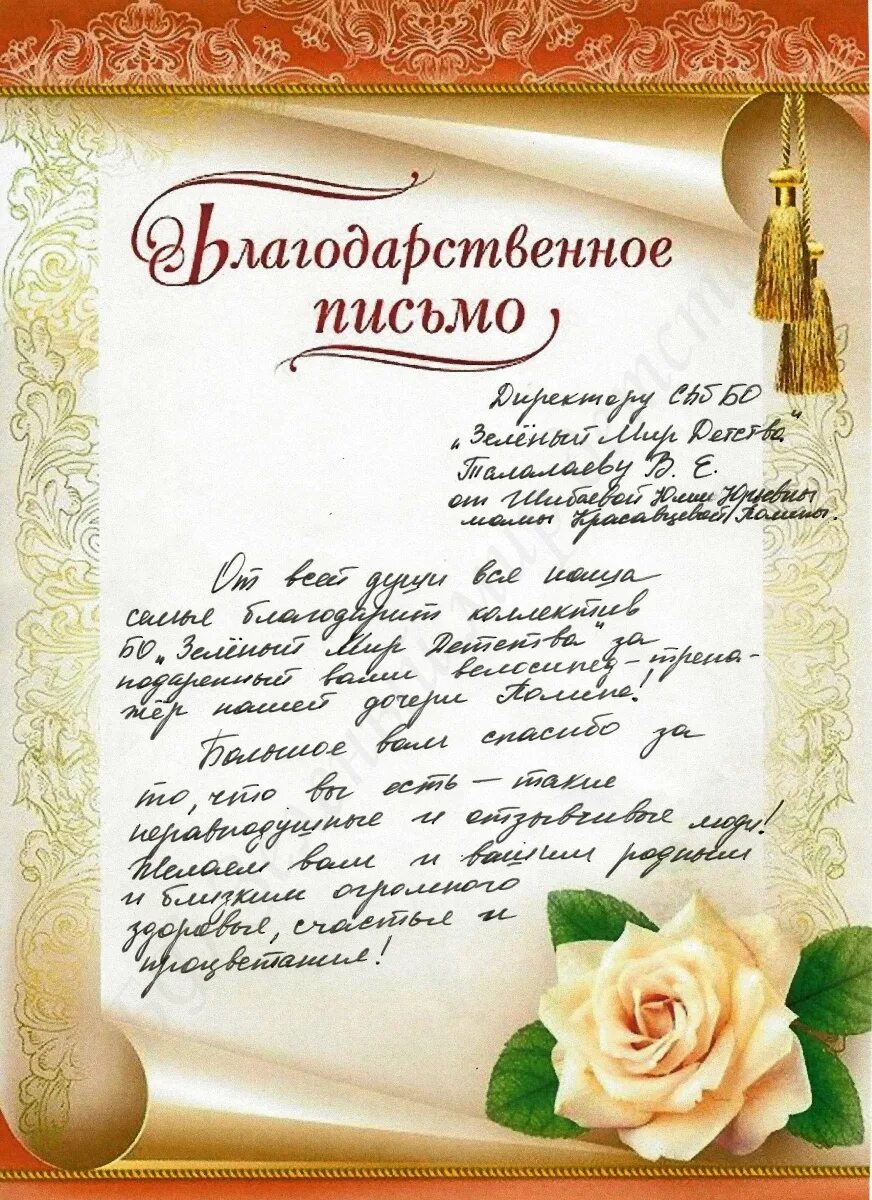 Благодарственное
письмо
Директору СПб БО
„Зелёный Мир Детства"
Талалаеву В. Е.
от Шибаевой Юлии Юрьевны
мамы Красавцевой Полины.
От всей души вся наша
семья благодарит коллектив
БО „Зелёный Мир Детства" за
подаренный вами велосипед-трена-
жёр нашей дочери Полине!
Большое вам спасибо за
то, что вы есть – такие
неравнодушные и отзывчивые люди!
Желаем вам и вашим родным
и близким огромного
здоровья, счастья и
процветания!